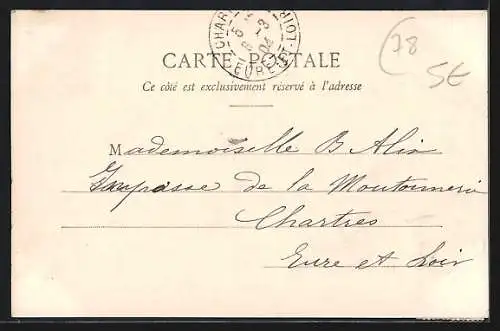 CHARTRES
EURE-ET-LOIR
78
5€
CARTE POSTALE
Ce côté est exclusivement réservé à l'adresse
Mademoiselle B Alix
Impasse de la Moutonnerie
Chartres
Eure et Loir